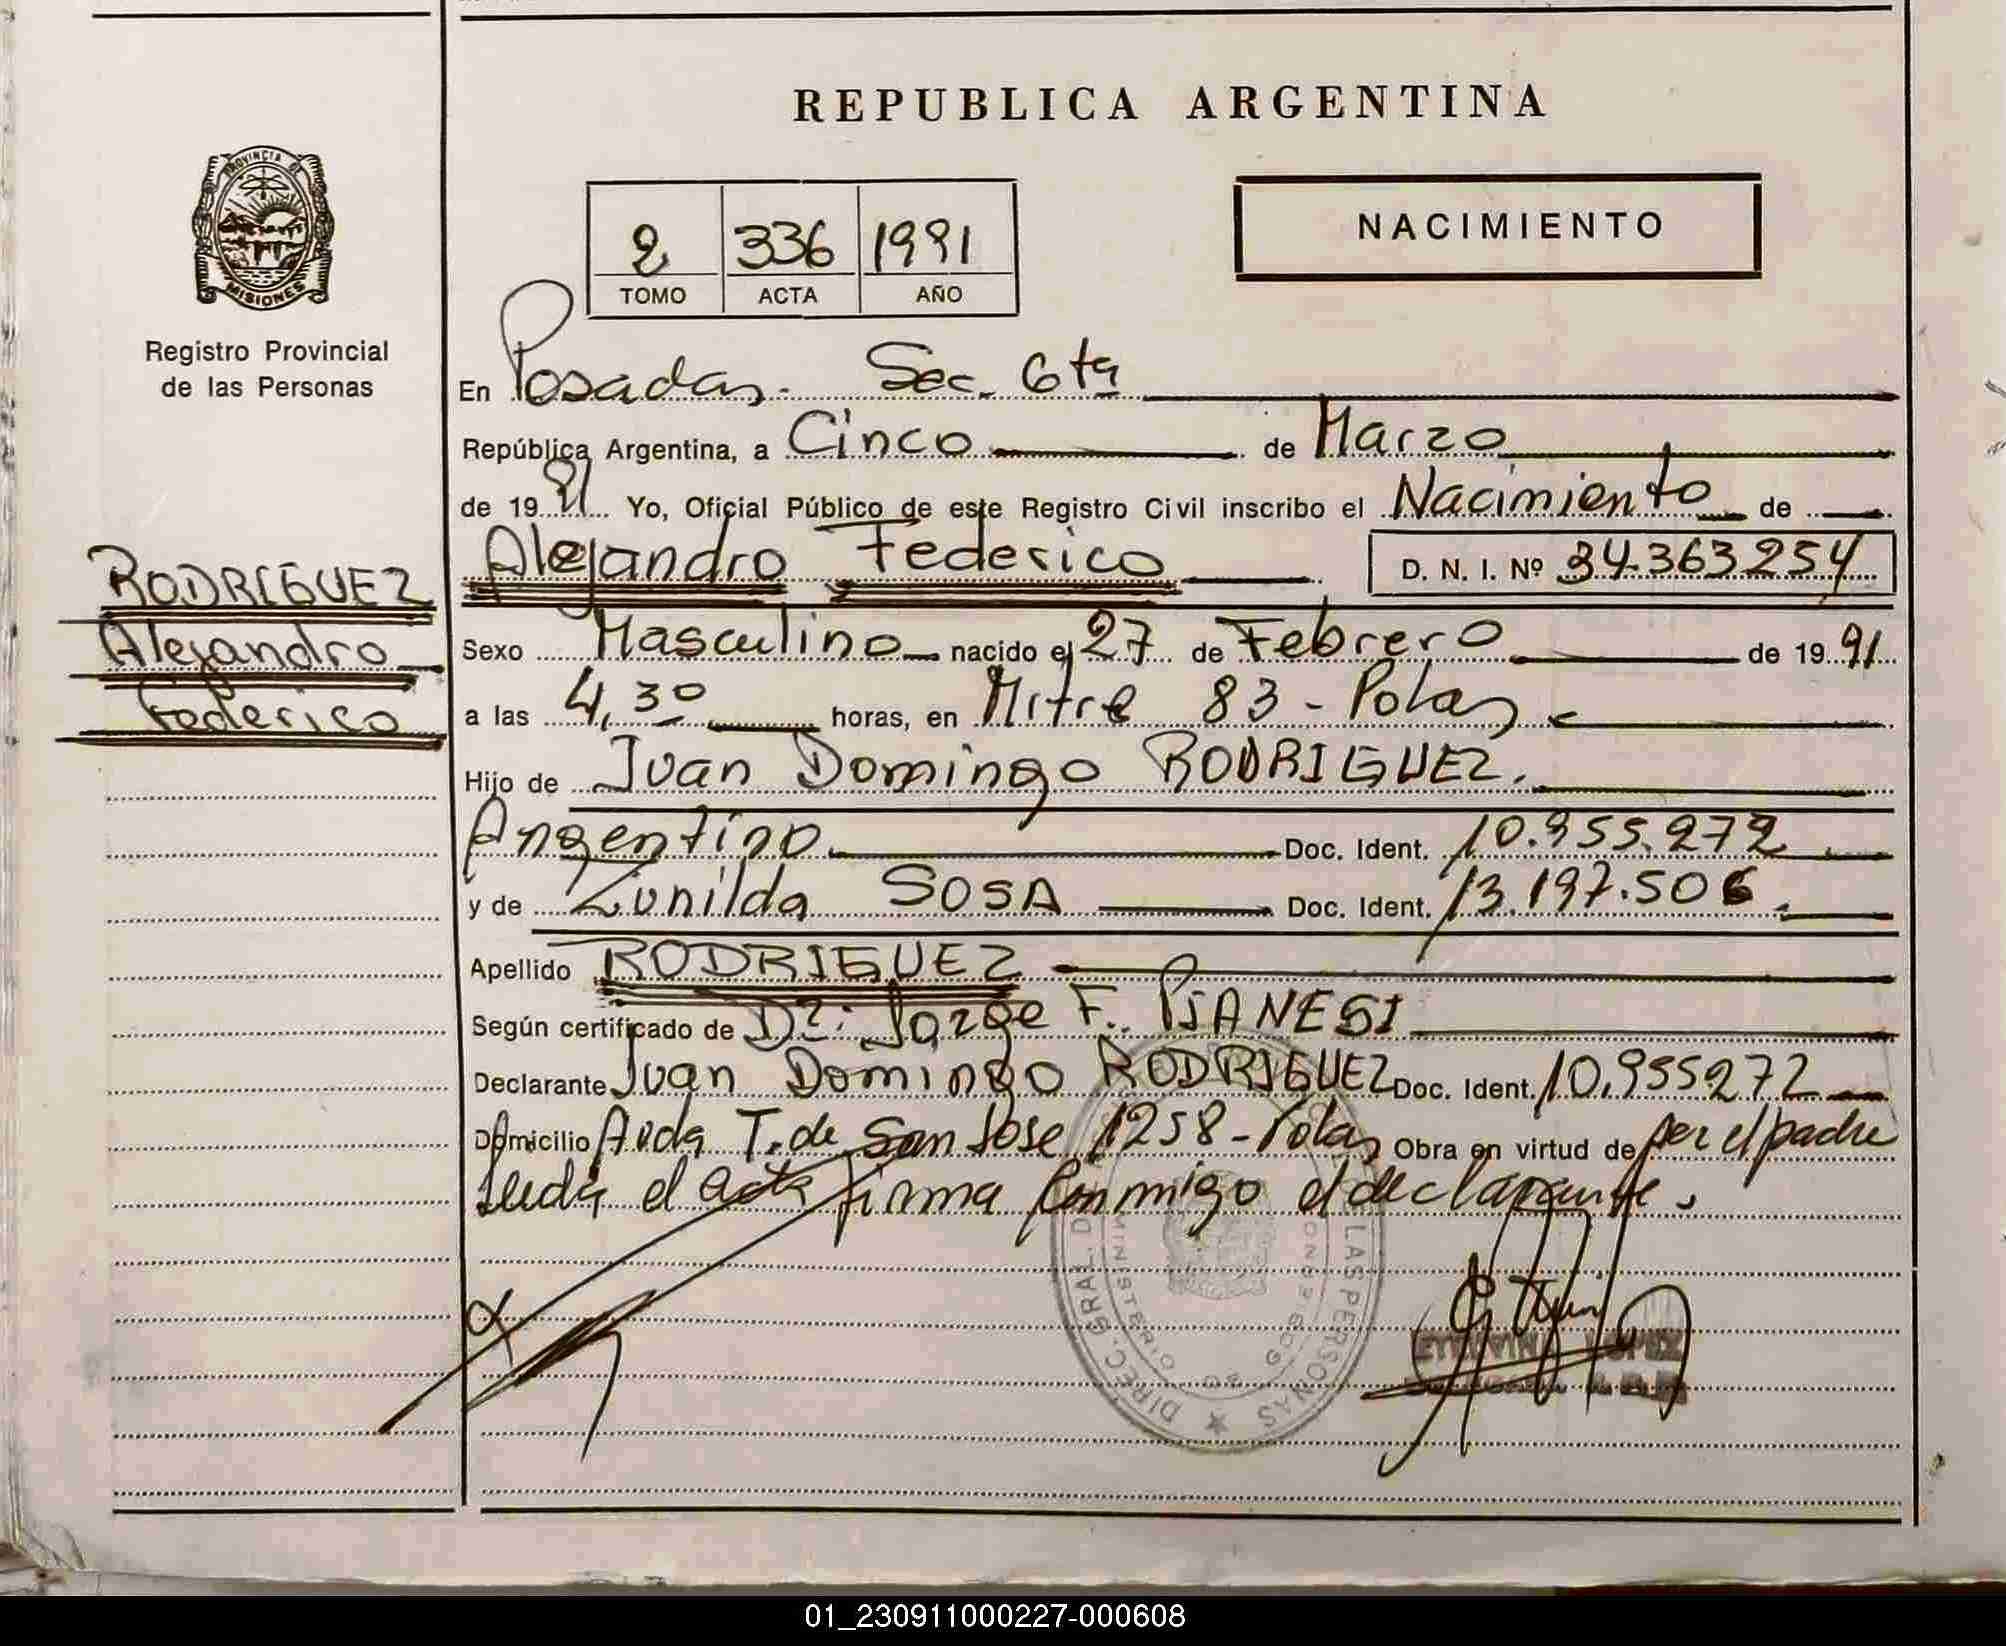 REPUBLICA ARGENTINA
PROVINCIA DE
MISIONES
Registro Provincial
de las Personas
NACIMIENTO
2 336 1991
TOMO ACTA AÑO
En Posadas. Sec. 6ta
República Argentina, a Cinco de Marzo
de 1991 Yo, Oficial Público de este Registro Civil inscribo el Nacimiento de
RODRIGUEZ
Alejandro
Federico
Alejandro Federico D. N. I. Nº 34.363254
Sexo Masculino nacido el 27 de Febrero de 1991
a las 4,30 horas, en Mitre 83 - Pdas
Hijo de Juan Domingo RODRIGUEZ.
Argentino Doc. Ident. 10.955.272
y de Zunilda SOSA Doc. Ident. 13.197.506
Apellido RODRIGUEZ
Según certificado de Dr: Jorge F. PIANESI
Declarante Juan Domingo RODRIGUEZ Doc. Ident. 10.955272
Domicilio Avda T. de San Jose 1258 - Pdas Obra en virtud de ser el padre
Leida el acta firma conmigo el declarante.
DIREC. GRAL. D LAS PERSONAS
MINISTERIO DE GOBIERNO
LOPEZ
01_230911000227-000608